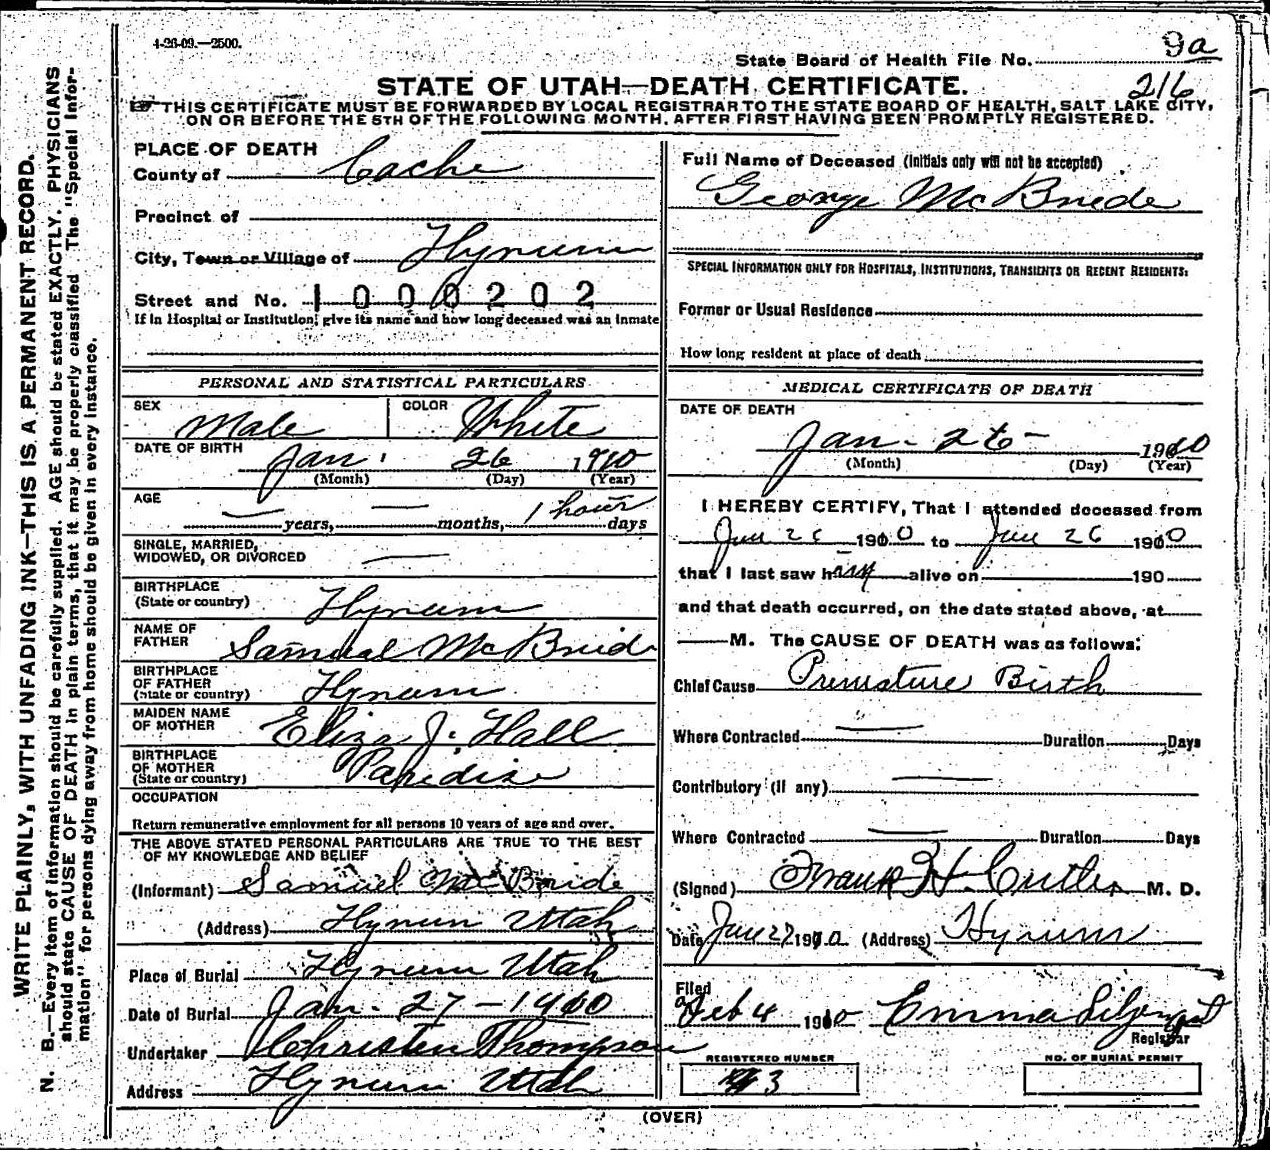 4-26-09.—2500.
9a
State Board of Health File No.
216
STATE OF UTAH—DEATH CERTIFICATE.
THIS CERTIFICATE MUST BE FORWARDED BY LOCAL REGISTRAR TO THE STATE BOARD OF HEALTH, SALT LAKE CITY,
ON OR BEFORE THE 5TH OF THE FOLLOWING MONTH, AFTER FIRST HAVING BEEN PROMPTLY REGISTERED.
WRITE PLAINLY, WITH UNFADING INK—THIS IS A PERMANENT RECORD.
N. B.—Every item of information should be carefully supplied. AGE should be stated EXACTLY. PHYSICIANS
should state CAUSE OF DEATH in plain terms, that it may be properly classified. The "Special Infor-
mation" for persons dying away from home should be given in every instance.
PLACE OF DEATH
County of Cache
Precinct of
City, Town or Village of Hyrum
Street and No. 1000202
If in Hospital or Institution, give its name and how long deceased was an inmate
PERSONAL AND STATISTICAL PARTICULARS
SEX Male COLOR White
DATE OF BIRTH Jan. 26 1910
(Month) (Day) (Year)
AGE
— years, — months, 1 hour days
SINGLE, MARRIED,
WIDOWED, OR DIVORCED —
BIRTHPLACE
(State or country) Hyrum
NAME OF
FATHER Samual McBride
BIRTHPLACE
OF FATHER
(State or country) Hyrum
MAIDEN NAME
OF MOTHER Eliza J. Hall
BIRTHPLACE
OF MOTHER
(State or country) Paridise
OCCUPATION
Return remunerative employment for all persons 10 years of age and over.
THE ABOVE STATED PERSONAL PARTICULARS ARE TRUE TO THE BEST
OF MY KNOWLEDGE AND BELIEF
(Informant) Samuel McBride
(Address) Hyrum Utah
Place of Burial Hyrum Utah
Date of Burial Jan. 27 - 1910
Undertaker Christen Thompson
Address Hyrum Utah
Full Name of Deceased (Initials only will not be accepted)
George McBride
SPECIAL INFORMATION ONLY FOR HOSPITALS, INSTITUTIONS, TRANSIENTS OR RECENT RESIDENTS:
Former or Usual Residence
How long resident at place of death
MEDICAL CERTIFICATE OF DEATH
DATE OF DEATH
Jan. 26 - 1910
(Month) (Day) (Year)
I HEREBY CERTIFY, That I attended deceased from
Jan 26 1910 to Jan 26 1910
that I last saw him alive on 190
and that death occurred, on the date stated above, at
— M. The CAUSE OF DEATH was as follows:
Chief Cause Premature Birth
Where Contracted — Duration Days
Contributory (if any) —
Where Contracted — Duration Days
(Signed) Frank H. Cutler M. D.
Date Jan 27 1910 (Address) Hyrum
Filed
Feb 4 1910 Emma Liljenquist
Registrar
REGISTERED NUMBER NO. OF BURIAL PERMIT
3
(OVER)